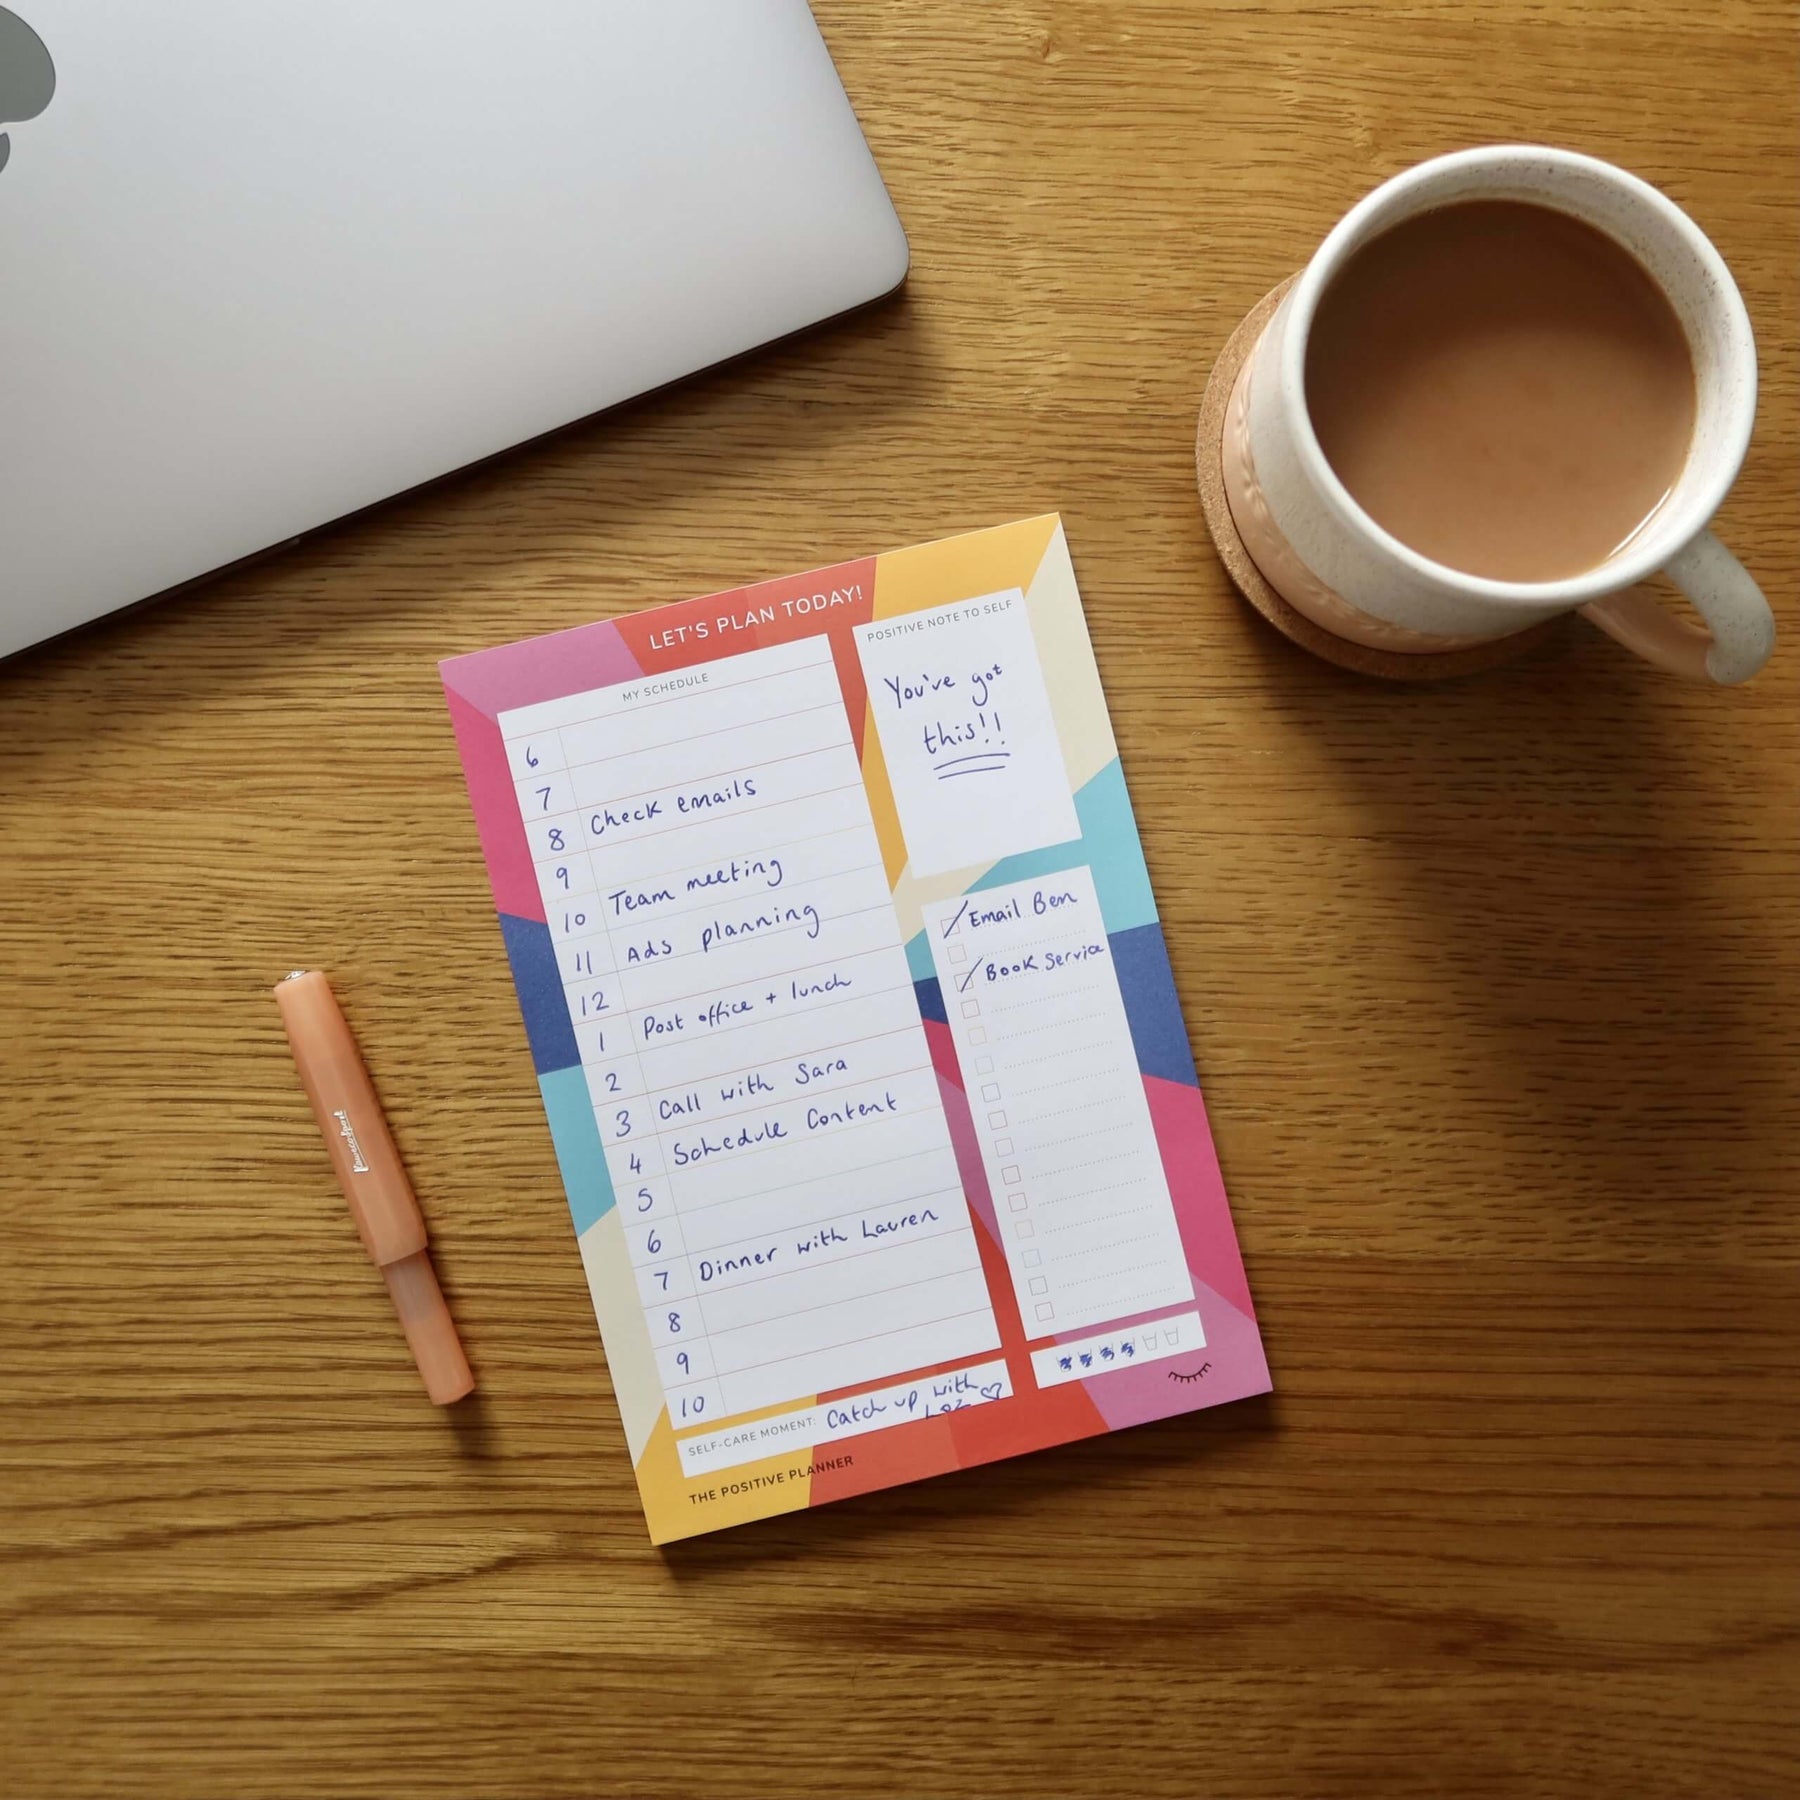 LET'S PLAN TODAY!
MY SCHEDULE
6
7
8 Check emails
9
10 Team meeting
11 Ads planning
12
1 Post office + lunch
2
3 Call with Sara
4 Schedule Content
5
6
7 Dinner with Lauren
8
9
10
POSITIVE NOTE TO SELF
You've got
this!!
Email Ben
Book Service
SELF-CARE MOMENT: Catch up with
Loz
THE POSITIVE PLANNER
Kaweco Sport